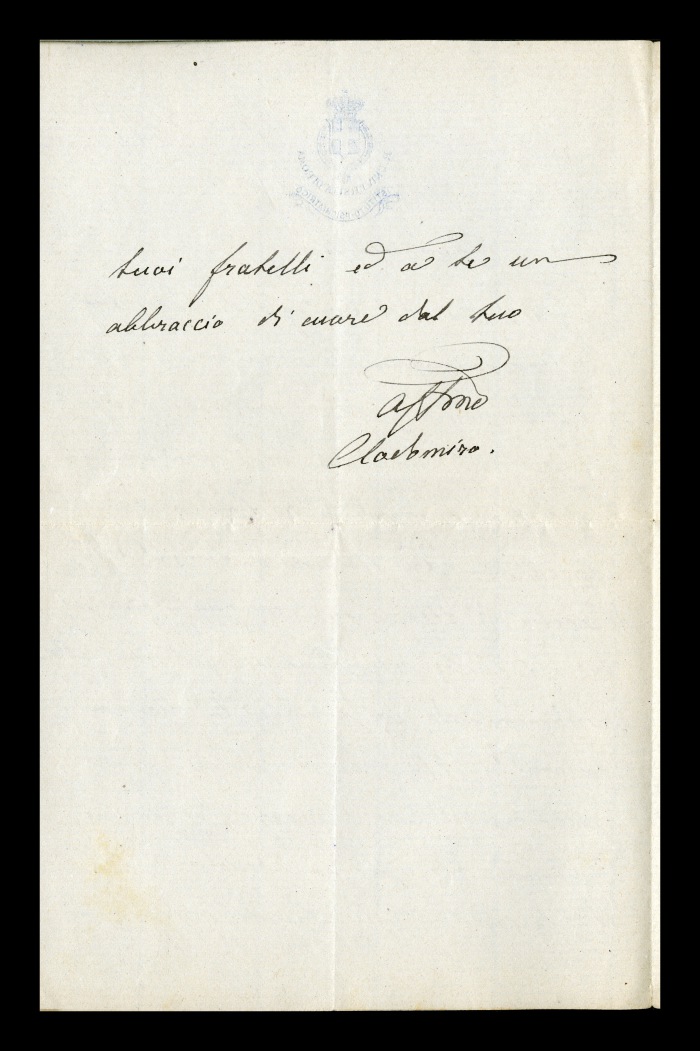 tuoi fratelli ed a te un
abbraccio di cuore dal tuo
affmo
Clodomiro.